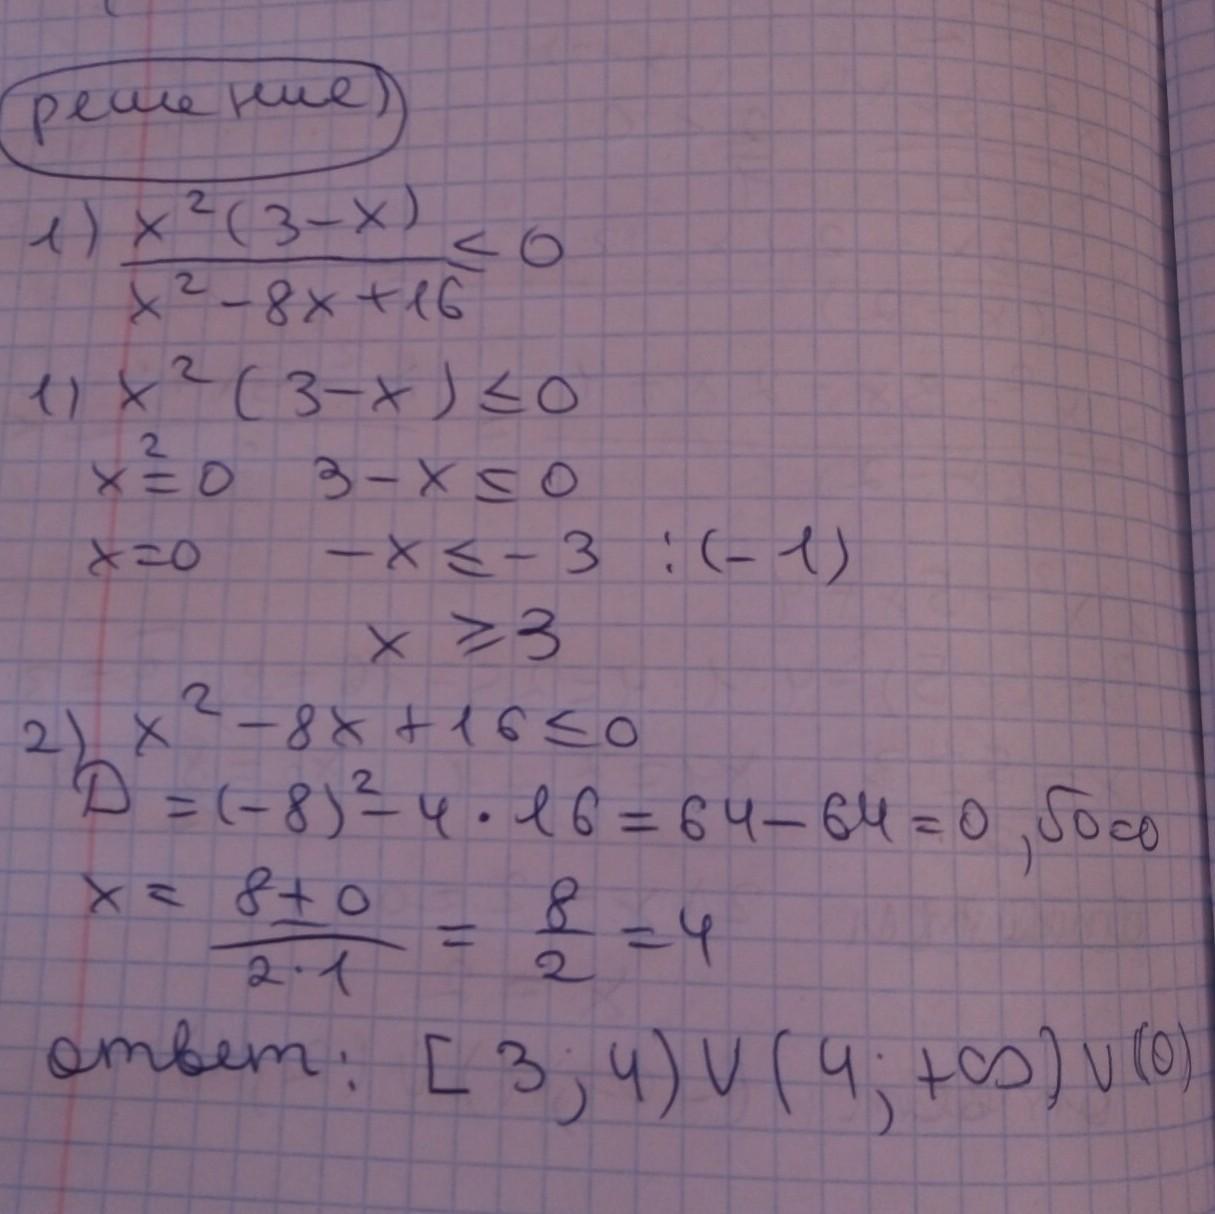 решение
1) x²(3-x) / x²-8x+16 ≤ 0
1) x²(3-x) ≤ 0
x²=0 3-x ≤ 0
x=0 -x ≤ -3 :(-1)
x ≥ 3
2) x²-8x+16 ≤ 0
D = (-8)²-4·16 = 64-64 = 0, √0=0
x = 8±0 / 2·1 = 8/2 = 4
ответ: [3;4)∨(4;+∞)∨(0)